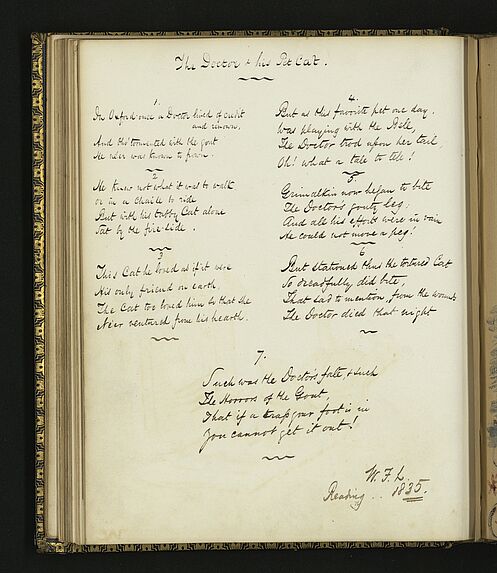 The Doctor & his Pet Cat.
1
In Oxford once a Doctor lived of credit
and renown,
And tho' tormented with the Gout
He never was known to frown.
2
He knew not what it was to walk
or in a Chaise to ride
But with his tabby Cat alone
Sat by the fire-side.
3
This Cat he loved as if it were
His only friend on earth,
The Cat too loved him & that she
Ne'er ventured from his hearth.
4.
But as this favorite pet one day
Was playing with the Bell,
The Doctor trod upon her tail,
Oh! what a tale to tell!
5.
Grimalkin now began to bite
The Doctor's gouty leg;
And all his efforts were in vain
He could not move a peg!
6
But stationed thus the tortured Cat
So dreadfully did bite,
That sad to mention, from the wounds
The Doctor died that night
7.
Such was the Doctors fate, & such
The Horrors of the Gout,
That if a trap your foot is in
You cannot get it out!
W. F. L.
Reading .. 1835.